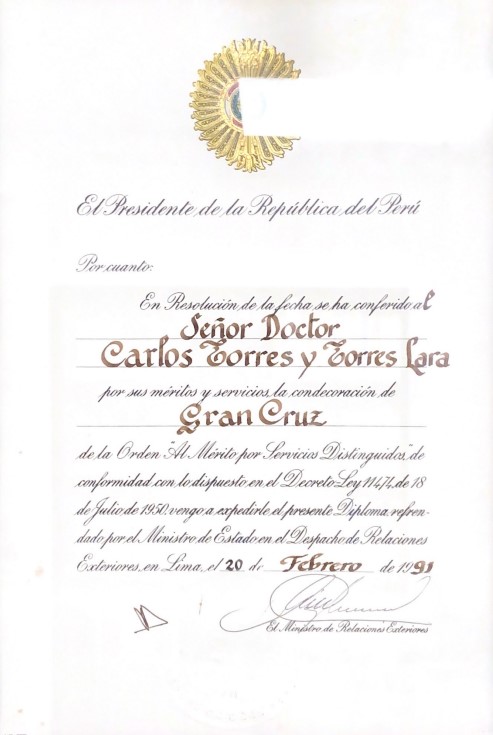 El Presidente de la República del Perú
Por cuanto:
En Resolución de la fecha se ha conferido al
Señor Doctor
Carlos Torres y Torres Lara
por sus méritos y servicios, la condecoración de
Gran Cruz
de la Orden "Al Mérito por Servicios Distinguidos", de
conformidad con lo dispuesto en el Decreto Ley 11474, de 18
de Julio de 1950, vengo a expedirle el presente Diploma refren-
dado por el Ministro de Estado en el Despacho de Relaciones
Exteriores, en Lima, el 20 de Febrero de 1991
El Ministro de Relaciones Exteriores